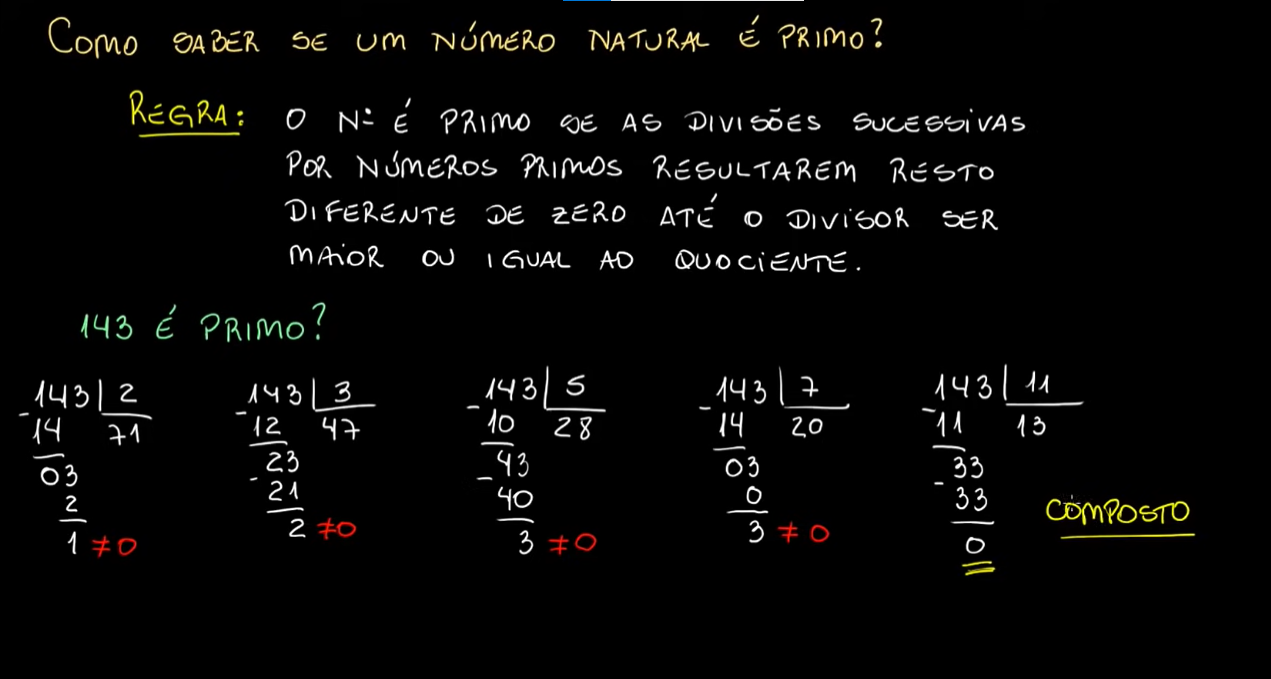 COMO SABER SE UM NÚMERO NATURAL É PRIMO?
REGRA: O Nº É PRIMO SE AS DIVISÕES SUCESSIVAS
POR NÚMEROS PRIMOS RESULTAREM RESTO
DIFERENTE DE ZERO ATÉ O DIVISOR SER
MAIOR OU IGUAL AO QUOCIENTE.
143 É PRIMO?
143 | 2
- 14 71
03
2
1 ≠0
143 | 3
- 12 47
23
- 21
2 ≠0
143 | 5
- 10 28
43
- 40
3 ≠0
143 | 7
- 14 20
03
0
3 ≠0
143 | 11
- 11 13
33
- 33
0
COMPOSTO